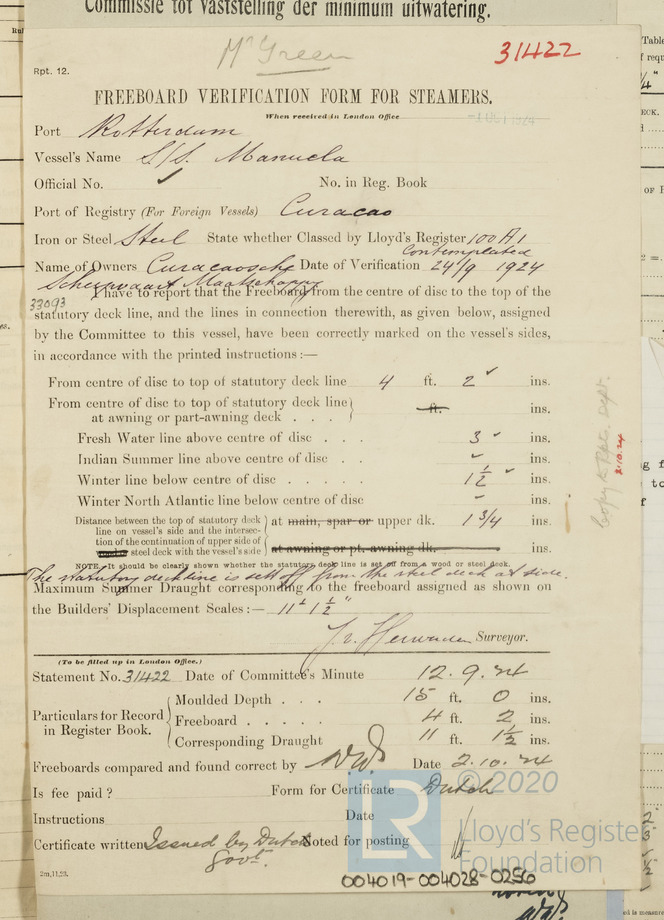 Commissie tot vaststelling der minimum uitwatering.
Mr Green
31422
Rpt. 12.
FREEBOARD VERIFICATION FORM FOR STEAMERS.
When received in London Office
Port Rotterdam
Vessel's Name S/S. Manuela
Official No. ✓ No. in Reg. Book
Port of Registry (For Foreign Vessels) Curacao
Iron or Steel Steel State whether Classed by Lloyd's Register 100 A1
Contemplated
Name of Owners Curacaosche Date of Verification 24/9 1924
Scheepvaart Maatschappy
33093
I have to report that the Freeboard from the centre of disc to the top of the
statutory deck line, and the lines in connection therewith, as given below, assigned
by the Committee to this vessel, have been correctly marked on the vessel's sides,
in accordance with the printed instructions :—
From centre of disc to top of statutory deck line 4 ft. 2 ✓ ins.
From centre of disc to top of statutory deck line
at awning or part-awning deck . . . ft. ins.
Fresh Water line above centre of disc . . . 3 ✓ ins.
Indian Summer line above centre of disc . ✓ ins.
Winter line below centre of disc . . . . . 1 1/2 ✓ ins.
Winter North Atlantic line below centre of disc ✓ ins.
Distance between the top of statutory deck
line on vessel's side and the intersec-
tion of the continuation of upper side of
steel deck with the vessel's side
at main, spar or upper dk. 1 3/4 ins.
at awning or pt. awning dk. ins.
NOTE. It should be clearly shown whether the statutory deck line is set off from a wood or steel deck.
The statutory deckline is sett off from the steel deck at side.
Maximum Summer Draught corresponding to the freeboard assigned as shown on
the Builders' Displacement Scales :— 11' 1 1/2"
Surveyor.
(To be filled up in London Office.)
Statement No. 31422 Date of Committee's Minute 12.9.24
Particulars for Record
in Register Book.
Moulded Depth . . . 15 ft. 0 ins.
Freeboard . . . . . 4 ft. 2 ins.
Corresponding Draught 11 ft. 1 1/2 ins.
Freeboards compared and found correct by Date 2.10.24
Is fee paid ? Form for Certificate Dutch
Instructions Date
Certificate written Issued by Dutch Noted for posting
Govt.
2m,11,23.
Copy to Rpt. Dept.
© 2020
LR
Lloyd's Register
Foundation
004019-004028-0256